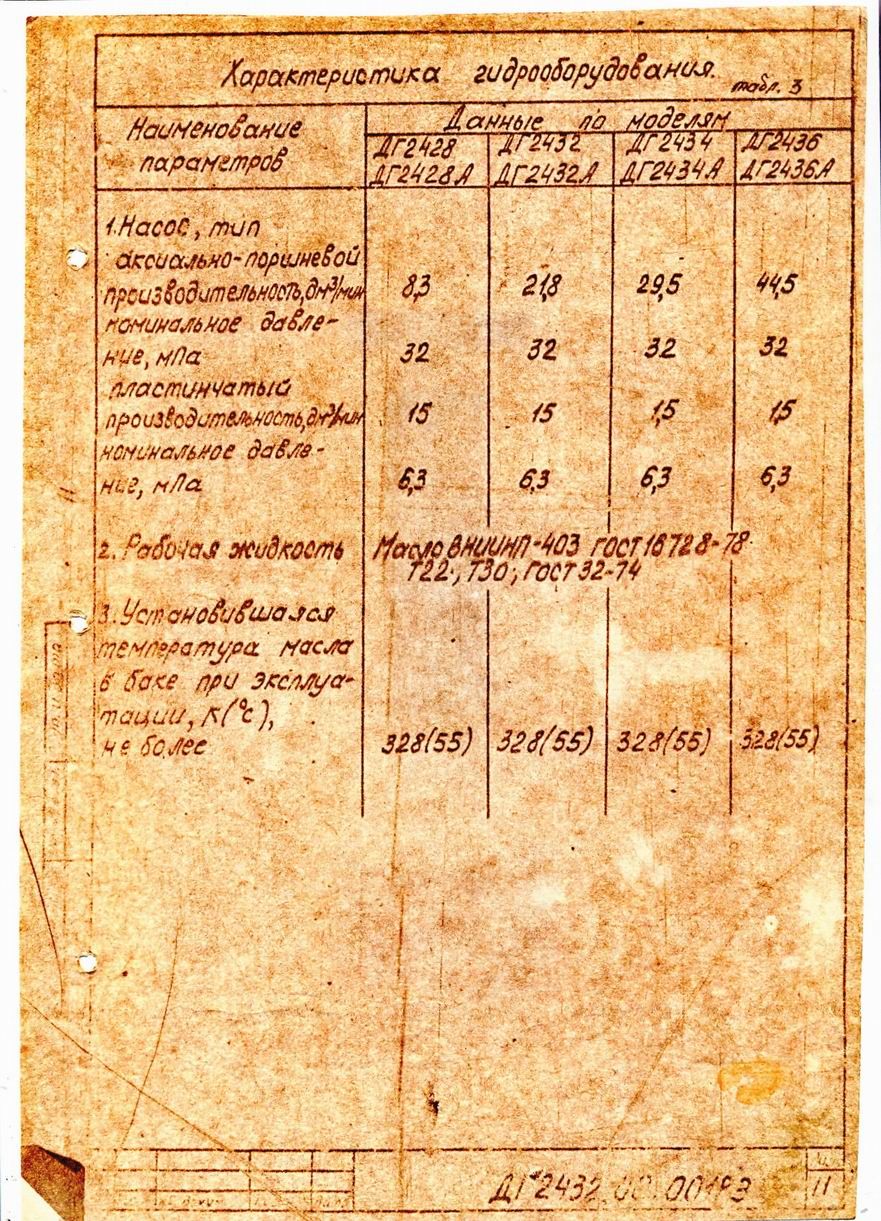 Характеристика гидрооборудования.
табл. 3
Наименование параметров
Данные по моделям
ДГ2428 ДГ2432 ДГ2434 ДГ2436
ДГ2428А ДГ2432А ДГ2434А ДГ2436А
1. Насос, тип
аксиально-поршневой
производительность, дм³/мин 8,3 21,8 29,5 44,5
номинальное давле-
ние, мПа 32 32 32 32
пластинчатый
производительность, дм³/мин 15 15 1,5 1,5
номинальное давле-
ние, мПа 6,3 6,3 6,3 6,3
2. Рабочая жидкость Масло ВНИИНП-403 ГОСТ 16728-78
Т22; Т30; ГОСТ 32-74
3. Установившаяся
температура масла
в баке при эксплуа-
тации, К(°с),
не более 328(55) 328(55) 328(55) 328(55)
ДГ2432.00.001РЭ
11